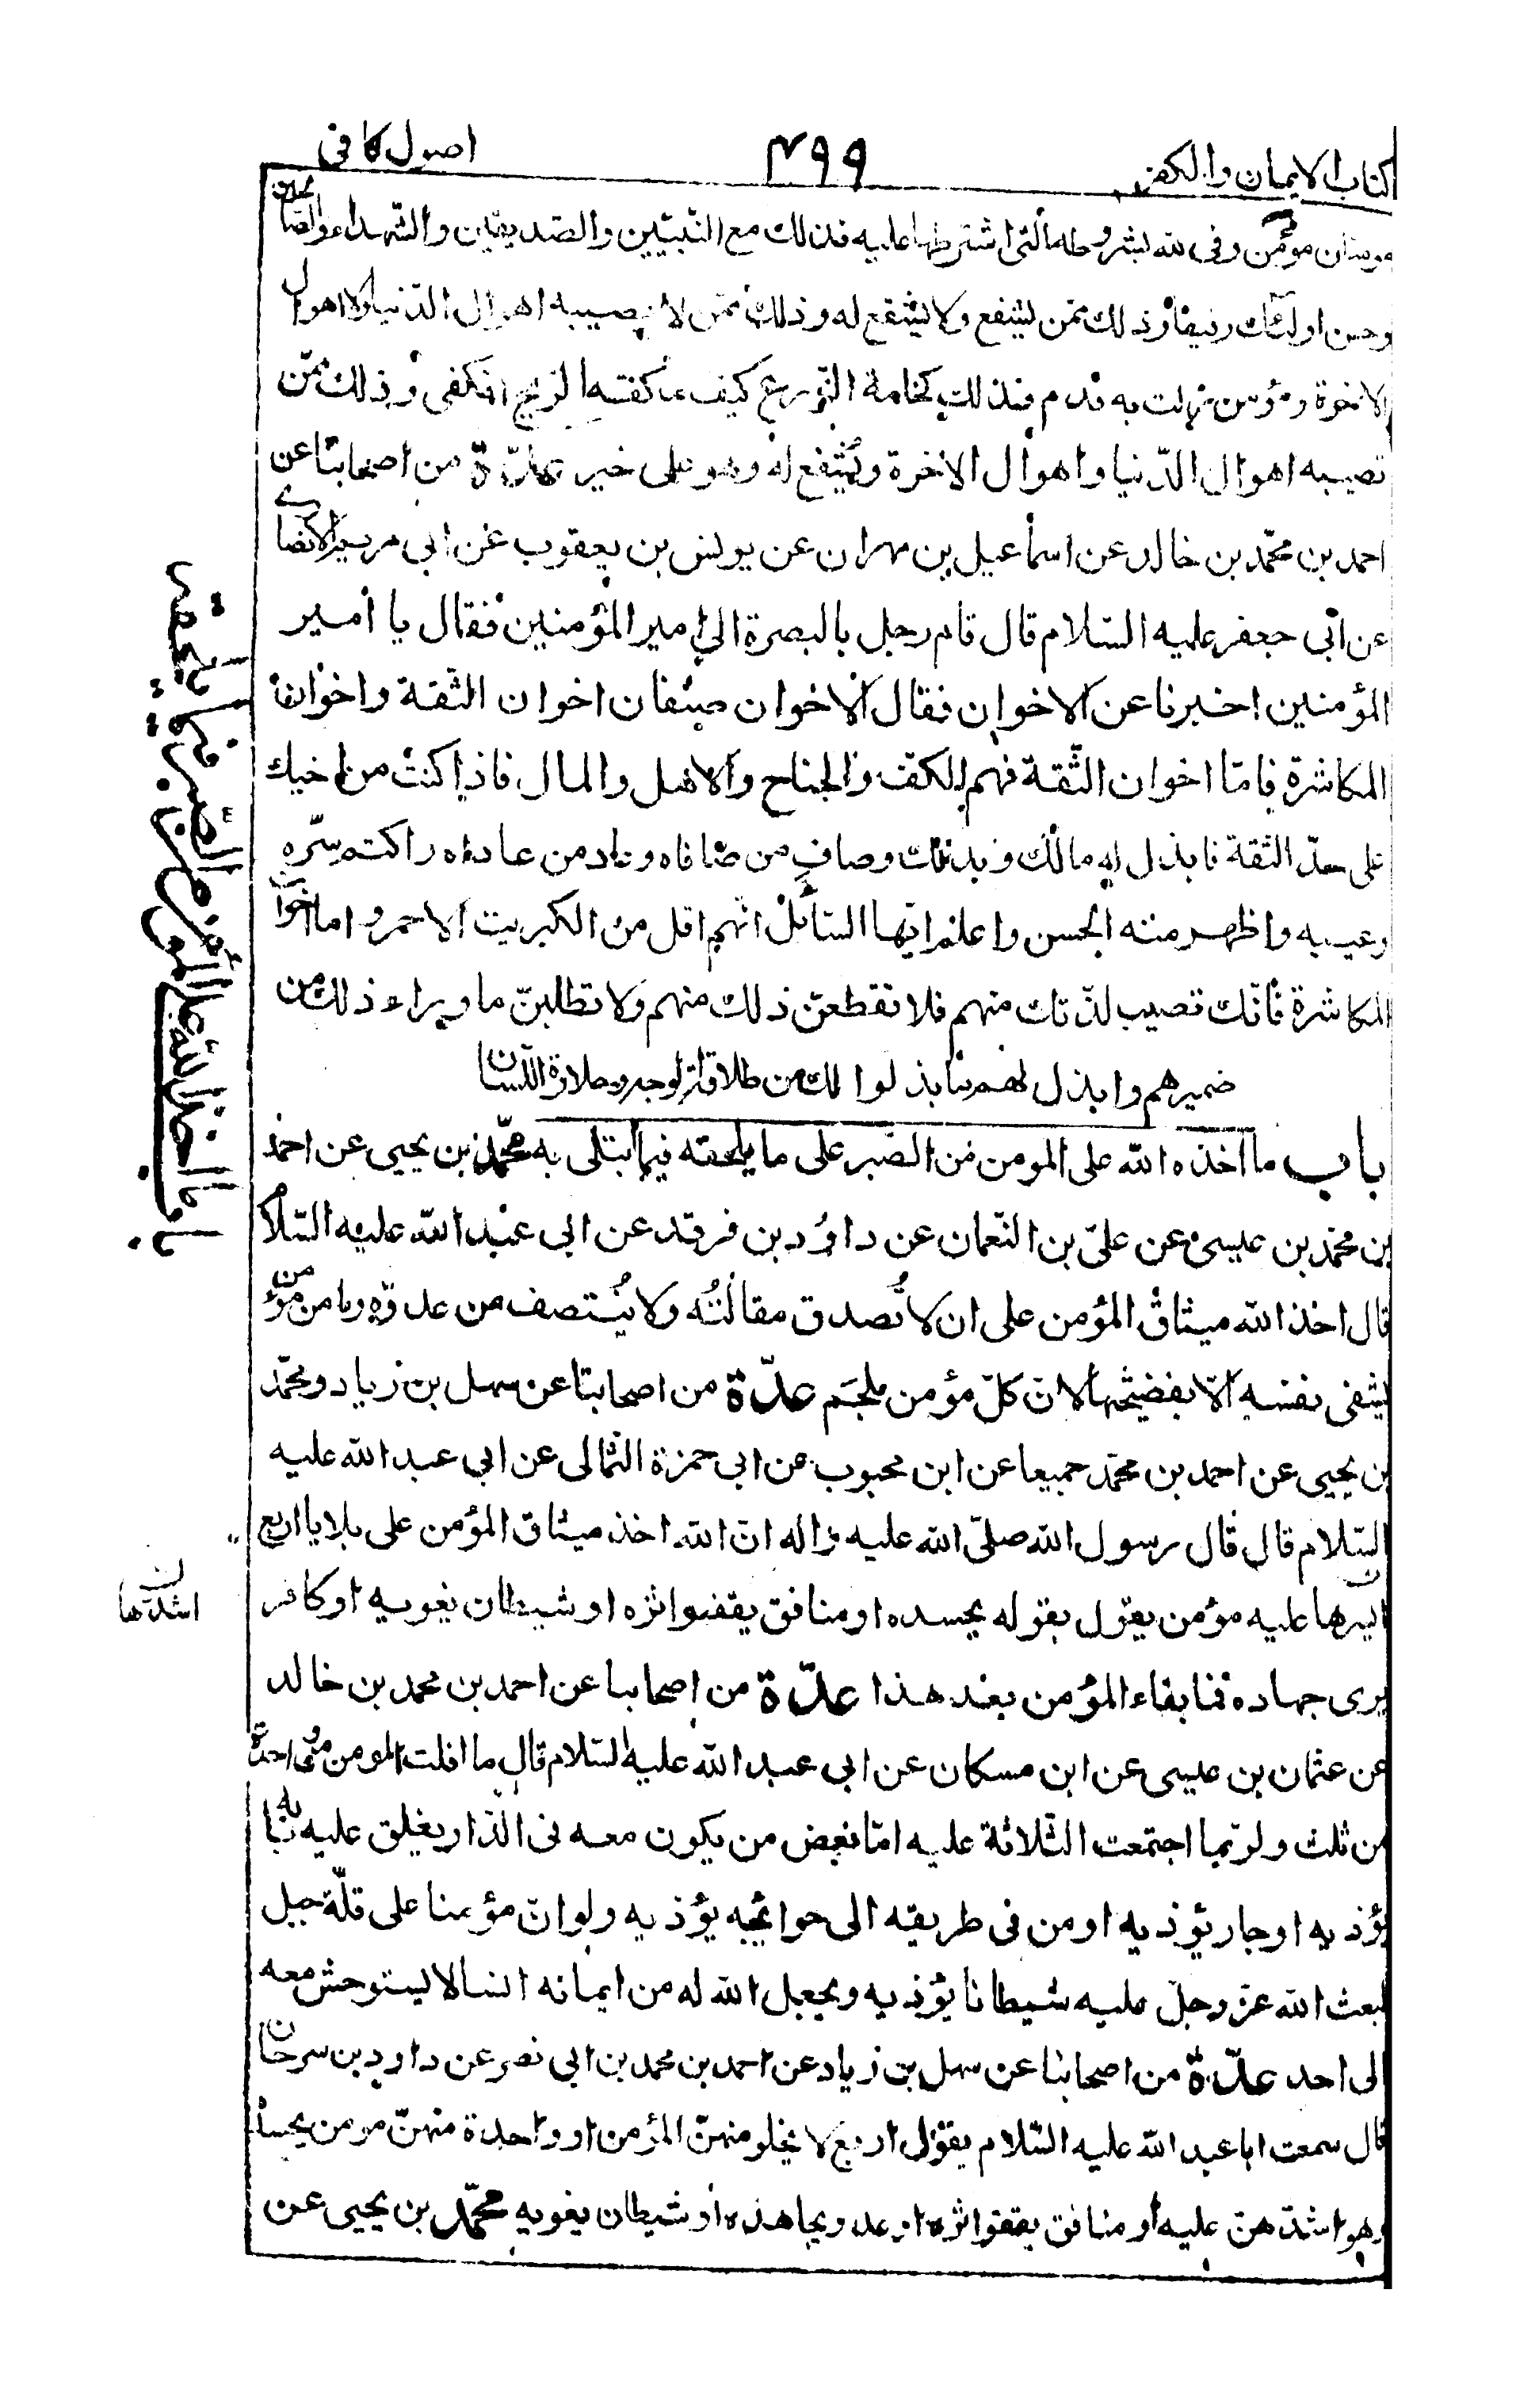 كتاب الايمان والكفر
٤٩٩
اصول كافى
مومنان مؤمن وفى لله بشروطه التى اشترطها عليه فذلك مع النبيين والصديقين والشهداء والصالحين
وحسن اولئك رفيقا وذلك ممن يشفع ولا يشفع له وذلك ممن لا تصيبه اهوال الدنيا ولا اهوال
الاخرة ومؤمن زلت به قدم فذلك كخامة الزرع كيف ما كفته الريح انكفى وذلك ممن
تصيبه اهوال الدنيا واهوال الاخرة ويشفع له وهو على خير عدّة من اصحابنا عن
احمد بن محمد بن خالد عن اسماعيل بن مهران عن يونس بن يعقوب عن ابى مريم الانصارى
عن ابى جعفر عليه السّلام قال قام رجل بالبصرة الى امير المؤمنين فقال يا أمير
المؤمنين اخبرنا عن الاخوان فقال الاخوان صنفان اخوان الثقة واخوان
المكاشرة فامّا اخوان الثّقة فهم الكف والجناح والاهل والمال فاذا كنت من اخيك
على حدّ الثقة فابذل له مالك وبدنك وصافِ من صافاه وعاد من عاداه واكتم سرّه
وعيبه واظهر منه الحسن واعلم ايّها السّائل انّهم اقل من الكبريت الاحمر واما اخوان
المكاشرة فأنّك تصيب لذّتك منهم فلا تقطعنّ ذلك منهم ولا تطلبنّ ما وراء ذلك من
ضميرهم وابذل لهم ما بذلوا لك من طلاقة الوجه وحلاوة اللّسان
باب ما اخذه الله على المومن من الصّبر على ما يلحقه فيما ابتلى به محمّد بن يحيى عن احمد
بن محمد بن عيسى عن علىّ بن النّعمان عن داوُد بن فرقد عن ابى عبد الله عليه السّلام
قال اخذ الله ميثاق المؤمن على ان لا تُصدق مقالتُه ولا يُنتصف من عدوّه وما من مؤمن
يشفى نفسه الّا بفضيحتها لانّ كلّ مؤمن ملجَم عدّة من اصحابنا عن سهل بن زياد ومحمّد
بن يحيى عن احمد بن محمّد جميعا عن ابن محبوب عن ابى حمزة الثمالى عن ابى عبد الله عليه
السّلام قال قال رسول الله صلّى الله عليه واله انّ الله اخذ ميثاق المؤمن على بلايا اربع
ايسرها عليه مؤمن يقول بقوله يحسده او منافق يقفو اثره او شيطان يغويه او كافر
يرى جهاده فما بقاء المؤمن بعد هذا عدّة من اصحابنا عن احمد بن محمد بن خالد
عن عثمان بن عيسى عن ابن مسكان عن ابى عبد الله عليه السّلام قال ما افلت المومن من واحدة
من ثلث ولربّما اجتمعت الثّلاثة عليه امّا بعض من يكون معه فى الدّار يغلق عليه بابه
يؤذيه او جار يؤذيه او من فى طريقه الى حوائجه يؤذيه ولو انّ مؤمنا على قلّة جبل
لبعث الله عزّ وجلّ عليه شيطانا يؤذيه ويجعل الله له من ايمانه انسا لا يستوحش معه
الى احد عدّة من اصحابنا عن سهل بن زياد عن احمد بن محمد بن ابى نصر عن داود بن سرحان
قال سمعت ابا عبد الله عليه السّلام يقول اربع لا يخلو منهنّ المؤمن او واحدة منهنّ مومن يحسده
وهو اشدّهنّ عليه أو منافق يقفو اثره او عدو يجاهده أو شيطان يغويه محمّد بن يحيى عن
باب ما اخذ الله على المؤمن من الصّبر على ما يلحقه
اشدّها